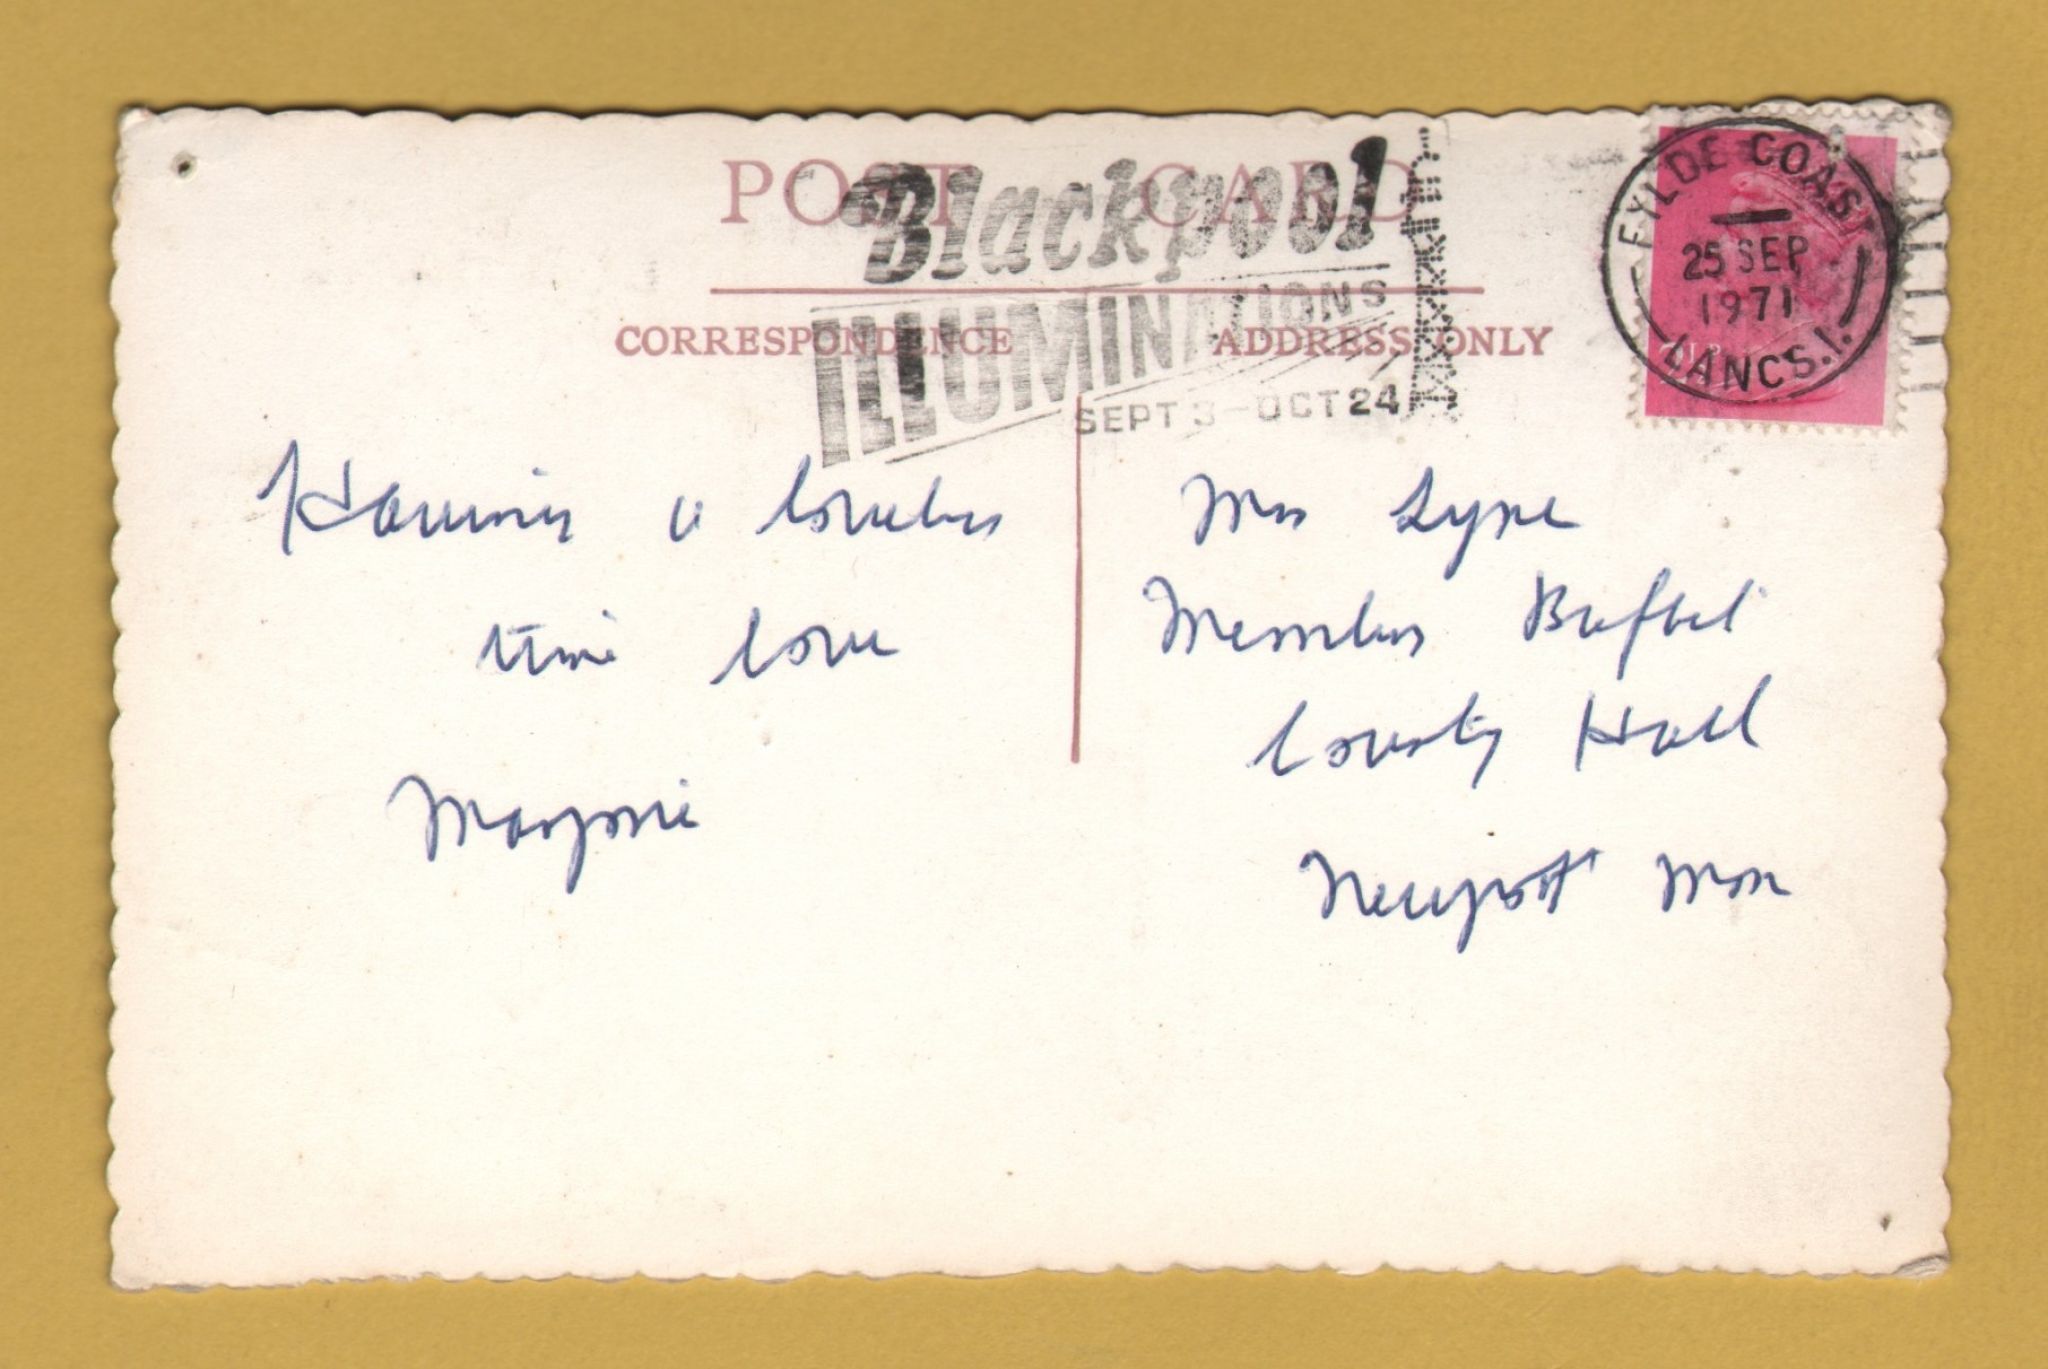 POST CARD
Blackpool
ILLUMINATIONS
SEPT 3-OCT 24
FYLDE COAST
25 SEP
1971
LANCS.1.
CORRESPONDENCE
ADDRESS ONLY
Having a lovely
time love
Marjorie
Mrs Lyne
Members Buffet
County Hall
Newport Mon